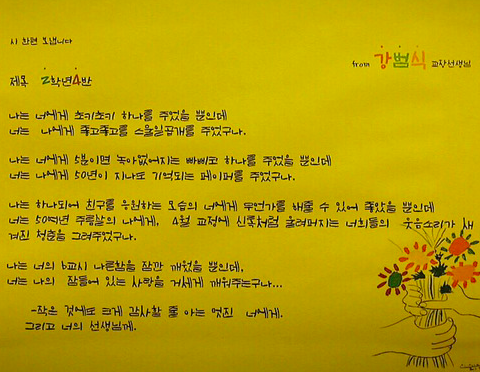 시 한편 보냅니다
from 강범식 교장선생님
제목 2학년4반
나는 너에게 쵸키쵸키 하나를 주었을 뿐인데
너는 나에게 쫄고쫄고를 스물일곱개를 주었구나.
나는 너에게 5분이면 녹아없어지는 빠삐코 하나를 주었을 뿐인데
너는 나에게 50년이 지나도 기억되는 페이퍼를 주었구나.
나는 하나되어 친구를 응원하는 모습의 너에게 무언가를 해줄 수 있어 좋았을 뿐인데
너는 50여년 주름살의 나에게, 4월 교정에 신록처럼 울려퍼지는 너희들의 웃음소리가 새
겨진 청춘을 그려주었구나.
나는 너의 6교시 나른함을 잠깐 깨웠을 뿐인데,
너는 나의 잠들어 있는 사랑을 거세게 깨워주는구나...
-작은 것에도 크게 감사할 줄 아는 멋진 너에게.
그리고 너의 선생님께.